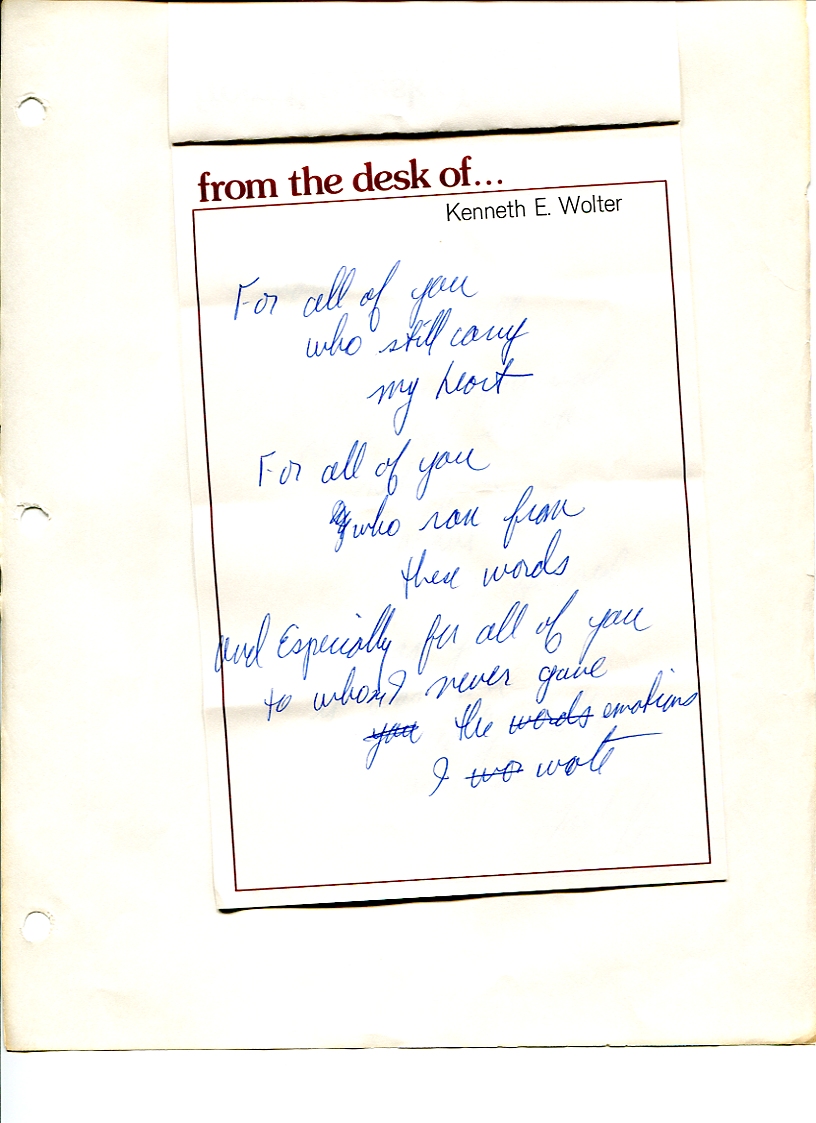 from the desk of...
Kenneth E. Wolter
For all of you
who still carry
my heart
For all of you
who ran from
these words
and Especially for all of you
to whom I never gave
you the words emotions
I wo wote